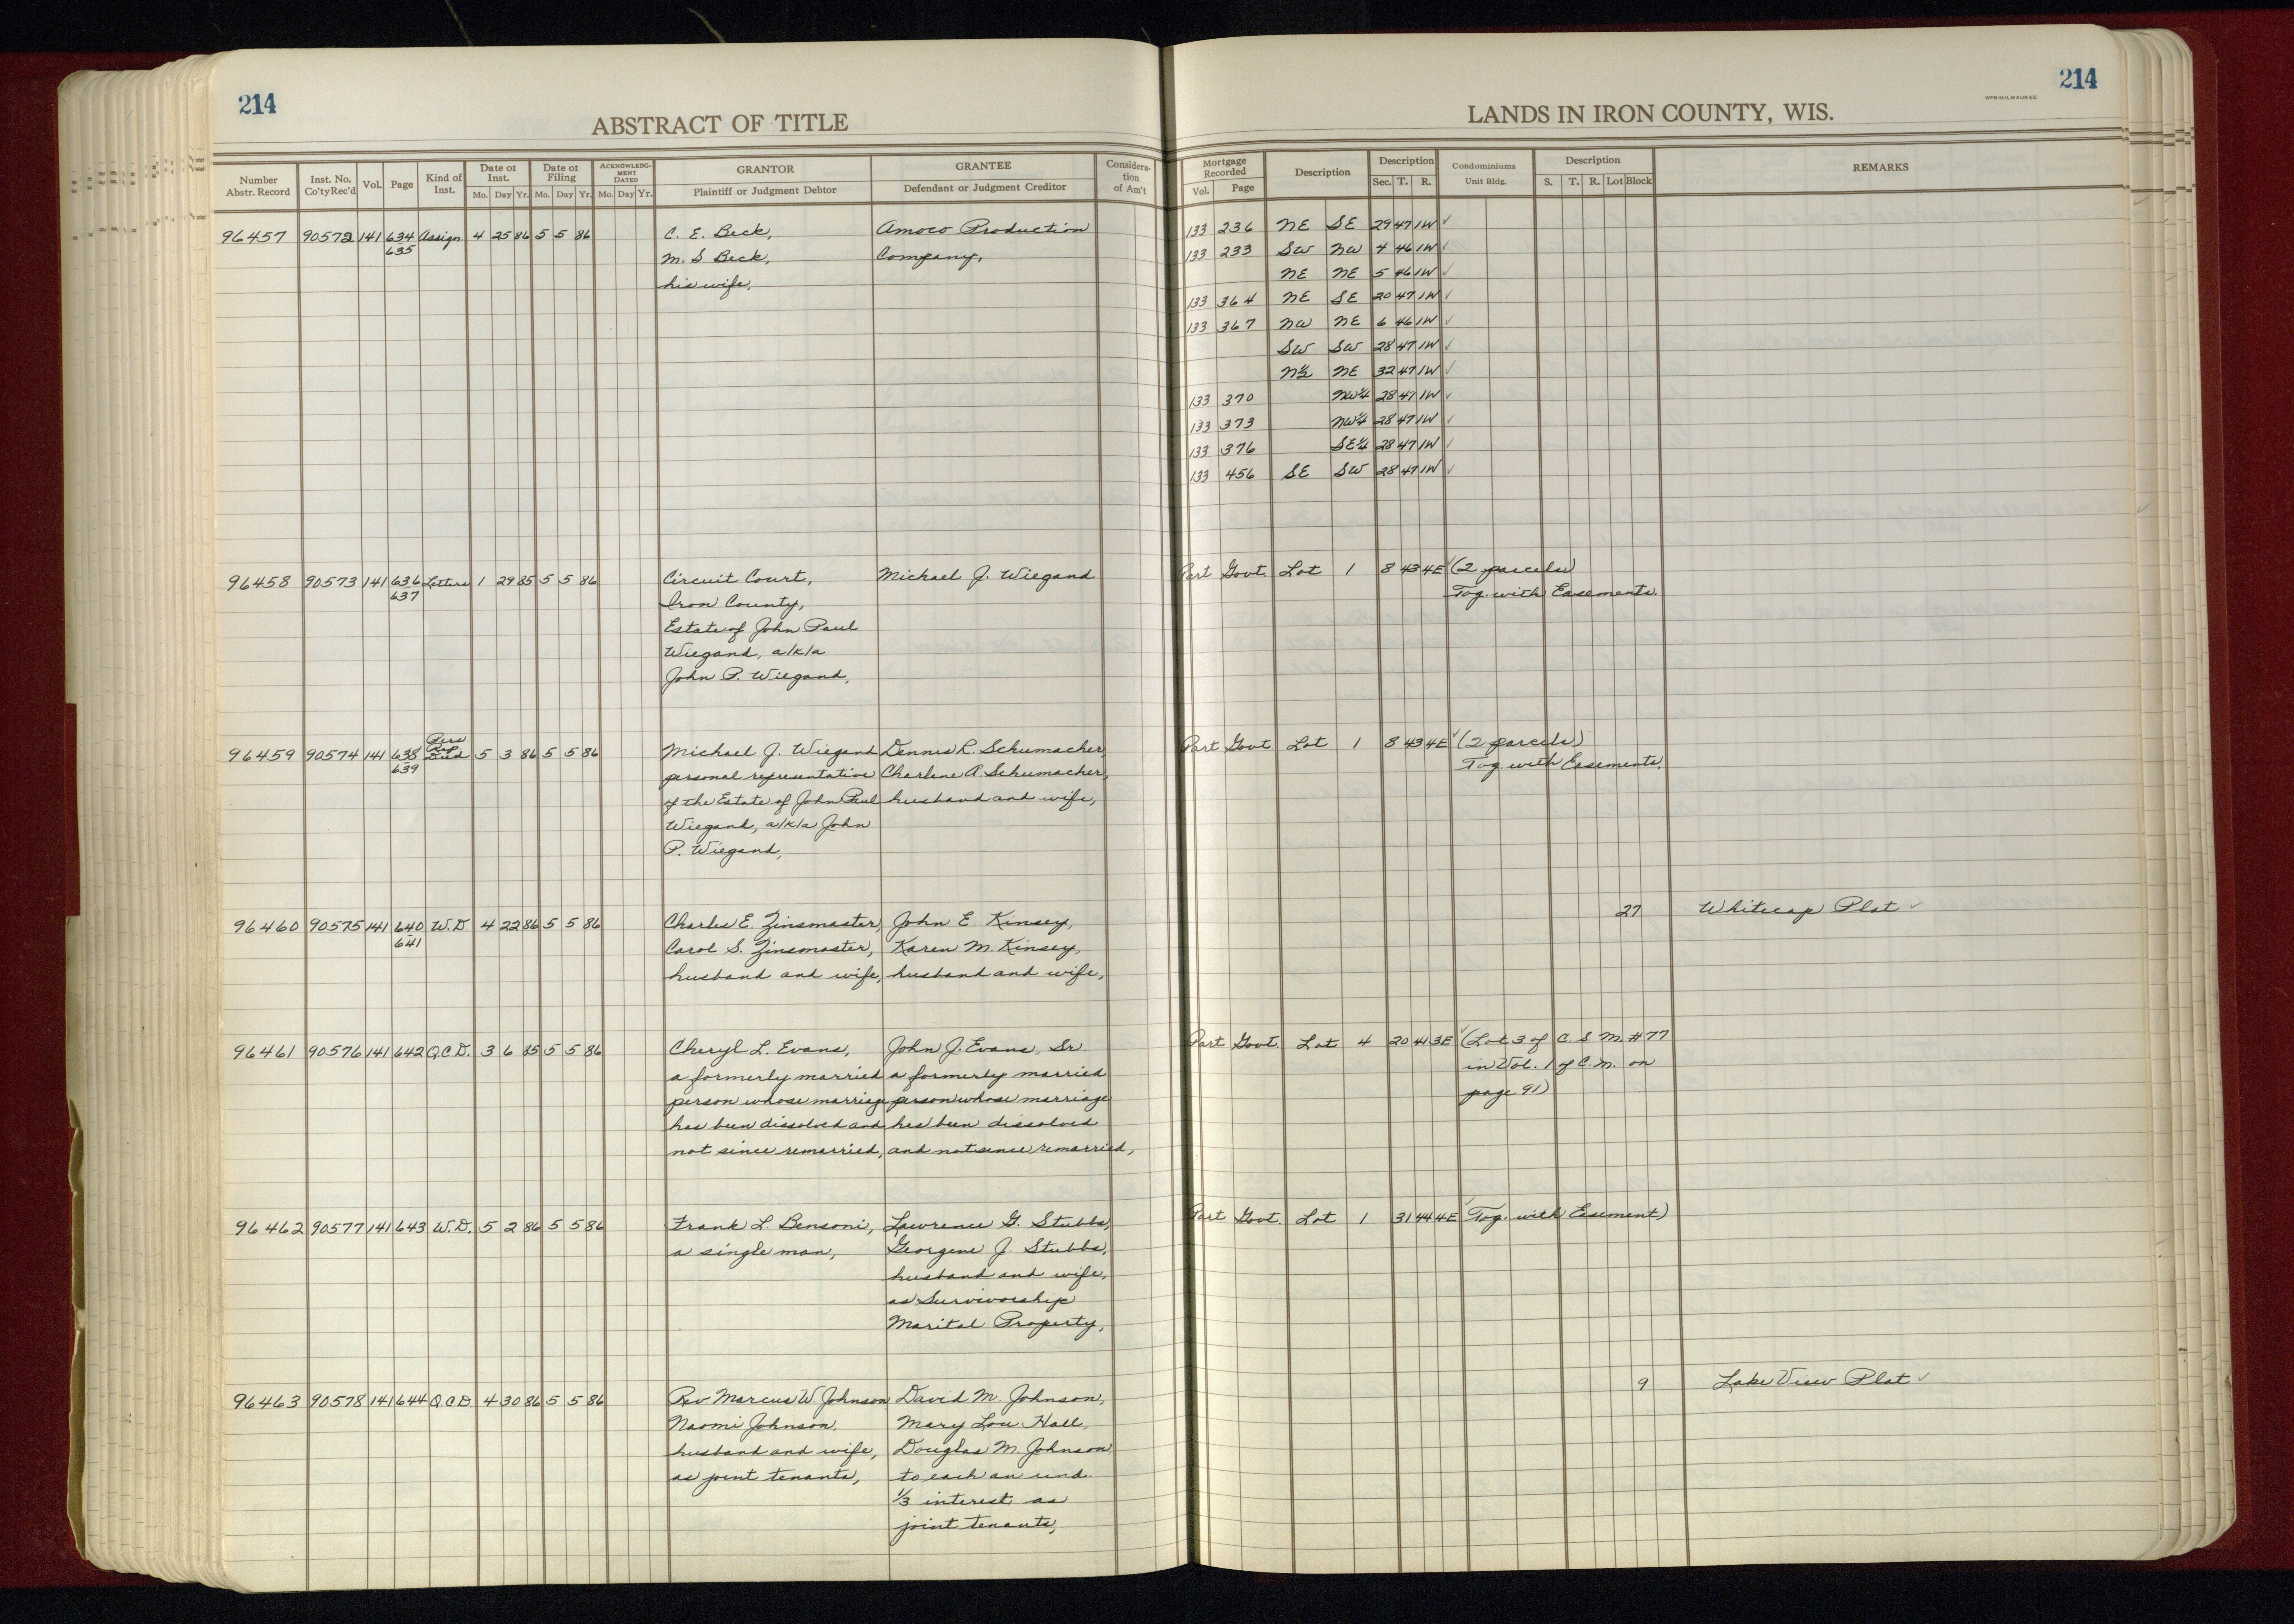 214
ABSTRACT OF TITLE
Number Abstr. Record | Inst. No. Co'ty Rec'd | Vol. | Page | Kind of Inst. | Date of Inst. Mo. Day Yr. | Date of Filing Mo. Day Yr. | ACKNOWLEDGMENT DATED Mo. Day Yr. | GRANTOR Plaintiff or Judgment Debtor | GRANTEE Defendant or Judgment Creditor | Consideration of Am't
96457 90572 141 634 Assign 4 25 86 5 5 86 C. E. Beck, Amoco Production
635 M. S Beck, Company,
his wife,
96458 90573 141 636 Letters 1 29 85 5 5 86 Circuit Court, Michael J. Wiegand
637 Iron County,
Estate of John Paul
Wiegand, a/k/a
John P. Wiegand,
96459 90574 141 638 Pers Rep Deed 5 3 86 5 5 86 Michael J. Wiegand Dennis R. Schumacher,
639 personal representative Charlene A. Schumacher,
of the Estate of John Paul husband and wife,
Wiegand, a/k/a John
P. Wiegand,
96460 90575 141 640 W.D 4 22 86 5 5 86 Charles E. Zinsmaster, John E. Kinsey,
641 Carol S. Zinsmaster, Karen M. Kinsey,
husband and wife, husband and wife,
96461 90576 141 642 Q.C.D. 3 6 85 5 5 86 Cheryl L. Evans, John J. Evans, Sr.
a formerly married a formerly married
person whose marriage person whose marriage
has been dissolved and has been dissolved
not since remarried, and not since remarried,
96462 90577 141 643 W.D. 5 2 86 5 5 86 Frank L. Bensoni, Lawrence G. Stubbs,
a single man, Georgene J. Stubbs,
husband and wife,
as Survivorship
Marital Property,
96463 90578 141 644 Q.C.D. 4 30 86 5 5 86 Rev Marcus W. Johnson David M. Johnson,
Naomi Johnson, Mary Lou Hall,
husband and wife, Douglas M. Johnson,
as joint tenants, to each an und.
1/3 interest as
joint tenants,
214
WPB-MILWAUKEE
LANDS IN IRON COUNTY, WIS.
Mortgage Recorded Vol. Page | Description | Description Sec. T. R. | Condominiums Unit Bldg. | Description S. T. R. Lot Block | REMARKS
133 236 NE SE 29 47 1W ✓
133 233 SW NW 4 46 1W ✓
NE NE 5 46 1W ✓
133 364 NE SE 20 47 1W ✓
133 367 NW NE 6 46 1W ✓
SW SW 28 47 1W ✓
N½ NE 32 47 1W ✓
133 370 NW¼ 28 47 1W ✓
133 373 NW¼ 28 47 1W ✓
133 376 SE¼ 28 47 1W ✓
133 456 SE SW 28 47 1W ✓
Part Govt. Lot 1 8 43 4E ✓ (2 parcels)
Tog. with Easements.
Part Govt Lot 1 8 43 4E ✓ (2 parcels)
Tog. with Easements.
27 Whitecap Plat ✓
Part Govt. Lot 4 20 41 3E ✓ (Lot 3 of C. S M. #77
in Vol. 1 of C.M. on
page 91)
Part Govt. Lot 1 31 44 4E ✓ Tog. with Easement)
9 Lake View Plat ✓